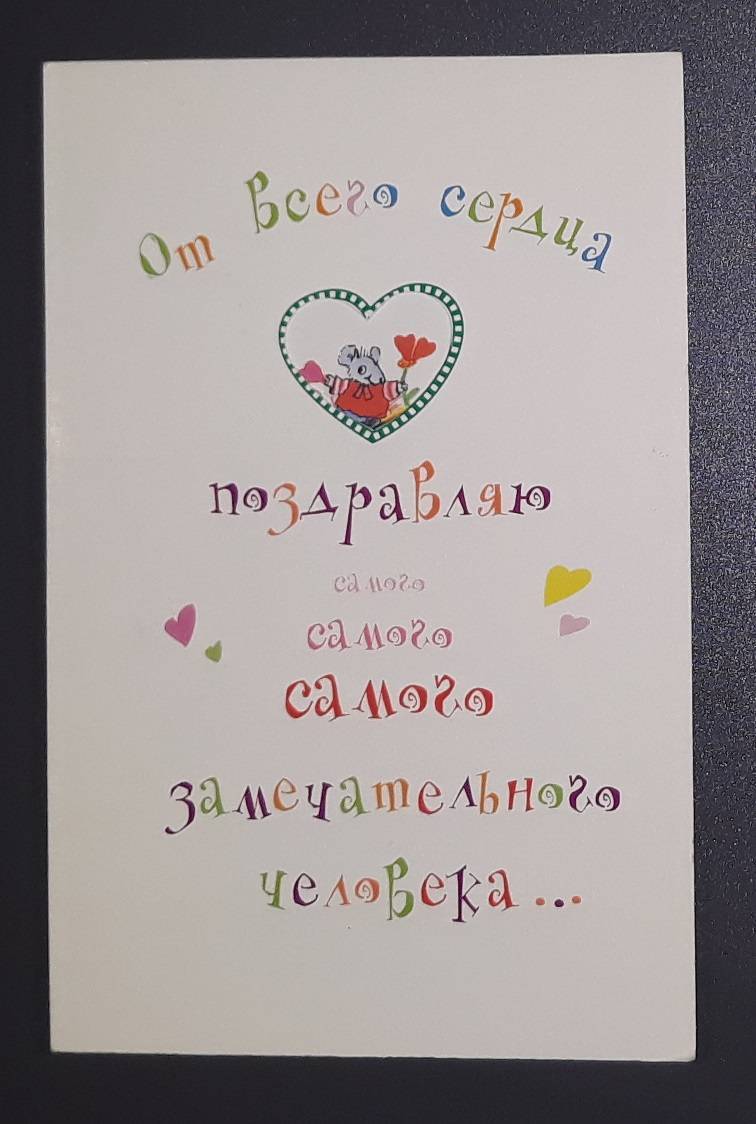 От всего сердца
поздравляю
самого
самого
самого
замечательного
человека...